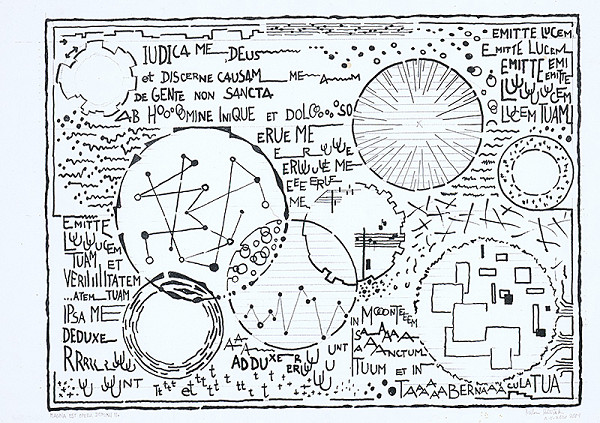 IUDICA ME DEUS
et DISCERNE CAUSAM ME A M
DE GENTE NON SANCTA
AB HOoooMINE INIQUE ET DOLOoooSO
ERUE ME
E RUUUE
ERUUE ME
EEE ERUE
ME
EMITTE LUCEM
EMITTE LUCEM
EMITTE EMI
EMITTE
LUUUUCEM
LUCEM TUAM
EMITTE
LUUUUCEM
TUAM ET
VERIIIIITATEM
...ATEM TUAM
IPSA ME
DEDUXE
RRRR UU
UU UNT
Tt t t t t t et t t t
AAA
ADDUXE R
ERUU UNT
IN MOOONTEEEM
SAAAAA
AAANCTUM
TUUM ET IN
TAAAABERNAAACULA TUA